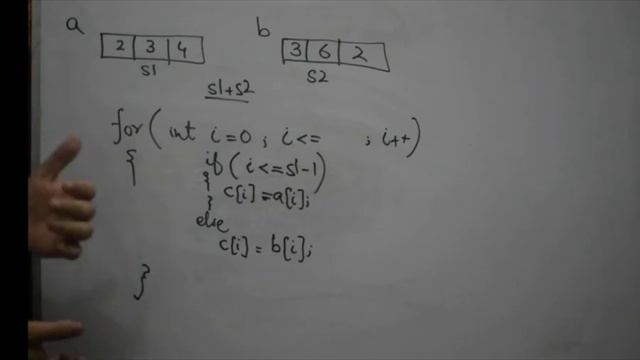 a 2 3 4 b 3 6 2
s1 s2
s1+s2
for( int i=0 ; i<= ; i++)
{ if( i<=s1-1)
{
} c[i]=a[i];
else
c[i]= b[i];
}